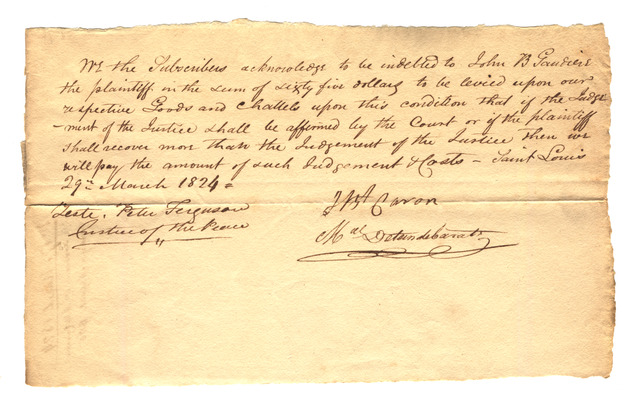 We the Subscribers acknowledge to be indebted to John B
the plaintiff in the sum of sixty five dollars to be levied upon our
respective Goods and Chattels upon this condition that if the Judge
-ment of the Justice shall be affirmed by the Court or if the plaintiff
shall recover more than the Judgement of the Justice then we
will pay the amount of such Judgement & Costs – Saint Louis
29th March 1824 =
Teste. Peter Ferguson
Justice of the Peace
J Bt Caron